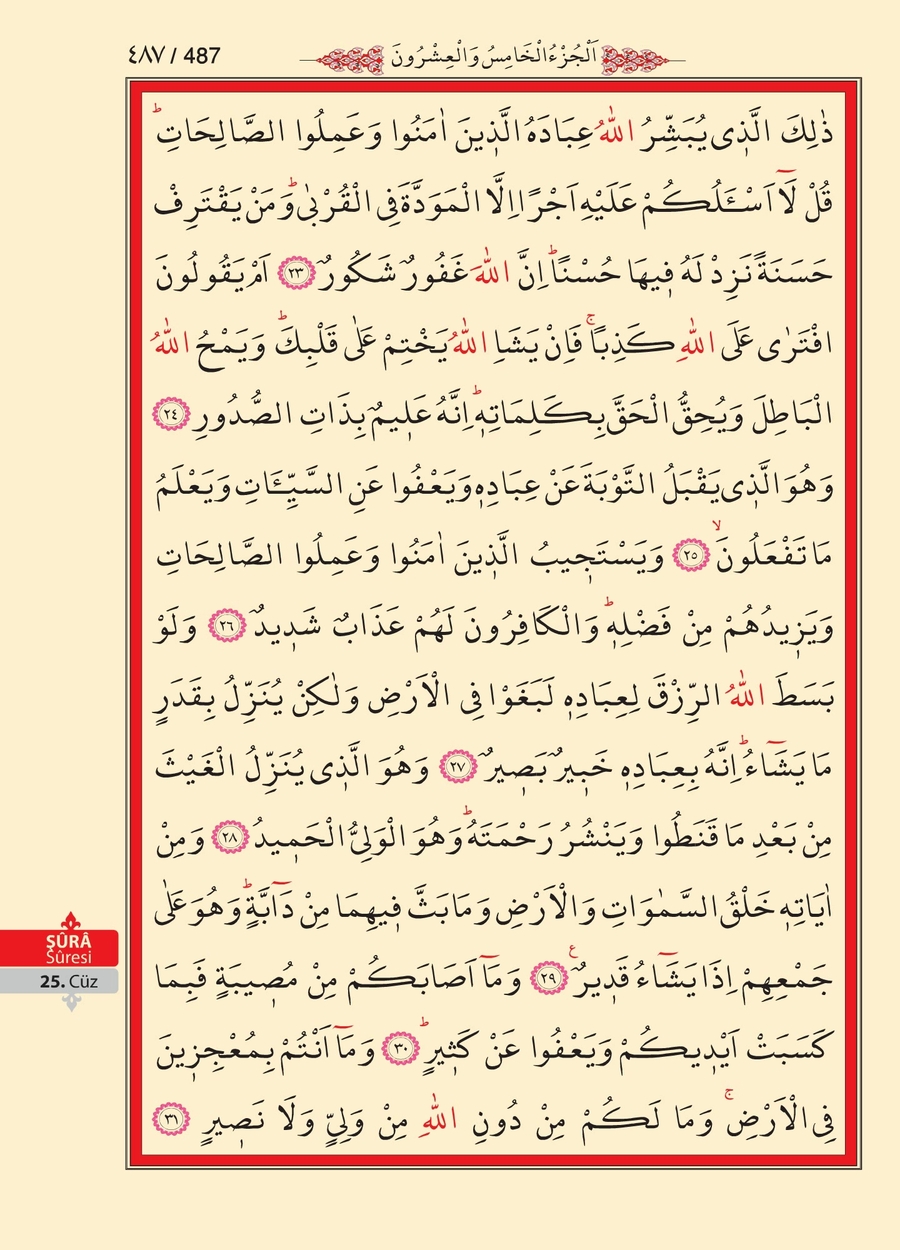 ٤٨٧ / 487
اَلْجُزْءُ الْخَامِسُ وَالْعِشْرُونَ
ذٰلِكَ الَّذ۪ي يُبَشِّرُ اللّٰهُ عِبَادَهُ الَّذ۪ينَ اٰمَنُوا وَعَمِلُوا الصَّالِحَاتِۜ
قُلْ لَٓا اَسْـَٔلُكُمْ عَلَيْهِ اَجْرًا اِلَّا الْمَوَدَّةَ فِي الْقُرْبٰىۜ وَمَنْ يَقْتَرِفْ
حَسَنَةً نَزِدْ لَهُ ف۪يهَا حُسْنًاۜ اِنَّ اللّٰهَ غَفُورٌ شَكُورٌ ﴿٢٣﴾ اَمْ يَقُولُونَ
افْتَرٰى عَلَى اللّٰهِ كَذِبًاۚ فَاِنْ يَشَاِ اللّٰهُ يَخْتِمْ عَلٰى قَلْبِكَۜ وَيَمْحُ اللّٰهُ
الْبَاطِلَ وَيُحِقُّ الْحَقَّ بِكَلِمَاتِه۪ۜ اِنَّهُ عَل۪يمٌ بِذَاتِ الصُّدُورِ ﴿٢٤﴾
وَهُوَ الَّذ۪ي يَقْبَلُ التَّوْبَةَ عَنْ عِبَادِه۪ وَيَعْفُوا عَنِ السَّيِّـَٔاتِ وَيَعْلَمُ
مَا تَفْعَلُونَۙ ﴿٢٥﴾ وَيَسْتَج۪يبُ الَّذ۪ينَ اٰمَنُوا وَعَمِلُوا الصَّالِحَاتِ
وَيَز۪يدُهُمْ مِنْ فَضْلِه۪ۜ وَالْكَافِرُونَ لَهُمْ عَذَابٌ شَد۪يدٌ ﴿٢٦﴾ وَلَوْ
بَسَطَ اللّٰهُ الرِّزْقَ لِعِبَادِه۪ لَبَغَوْا فِي الْاَرْضِ وَلٰكِنْ يُنَزِّلُ بِقَدَرٍ
مَا يَشَٓاءُۜ اِنَّهُ بِعِبَادِه۪ خَب۪يرٌ بَص۪يرٌ ﴿٢٧﴾ وَهُوَ الَّذ۪ي يُنَزِّلُ الْغَيْثَ
مِنْ بَعْدِ مَا قَنَطُوا وَيَنْشُرُ رَحْمَتَهُۜ وَهُوَ الْوَلِيُّ الْحَم۪يدُ ﴿٢٨﴾ وَمِنْ
اٰيَاتِه۪ خَلْقُ السَّمٰوَاتِ وَالْاَرْضِ وَمَا بَثَّ ف۪يهِمَا مِنْ دَٓابَّةٍۜ وَهُوَ عَلٰى
جَمْعِهِمْ اِذَا يَشَٓاءُ قَد۪يرٌ۟ ﴿٢٩﴾ وَمَٓا اَصَابَكُمْ مِنْ مُص۪يبَةٍ فَبِمَا
كَسَبَتْ اَيْد۪يكُمْ وَيَعْفُوا عَنْ كَث۪يرٍۜ ﴿٣٠﴾ وَمَٓا اَنْتُمْ بِمُعْجِز۪ينَ
فِي الْاَرْضِۚ وَمَا لَكُمْ مِنْ دُونِ اللّٰهِ مِنْ وَلِيٍّ وَلَا نَص۪يرٍ ﴿٣١﴾
ŞÛRÂ
Sûresi
25. Cüz